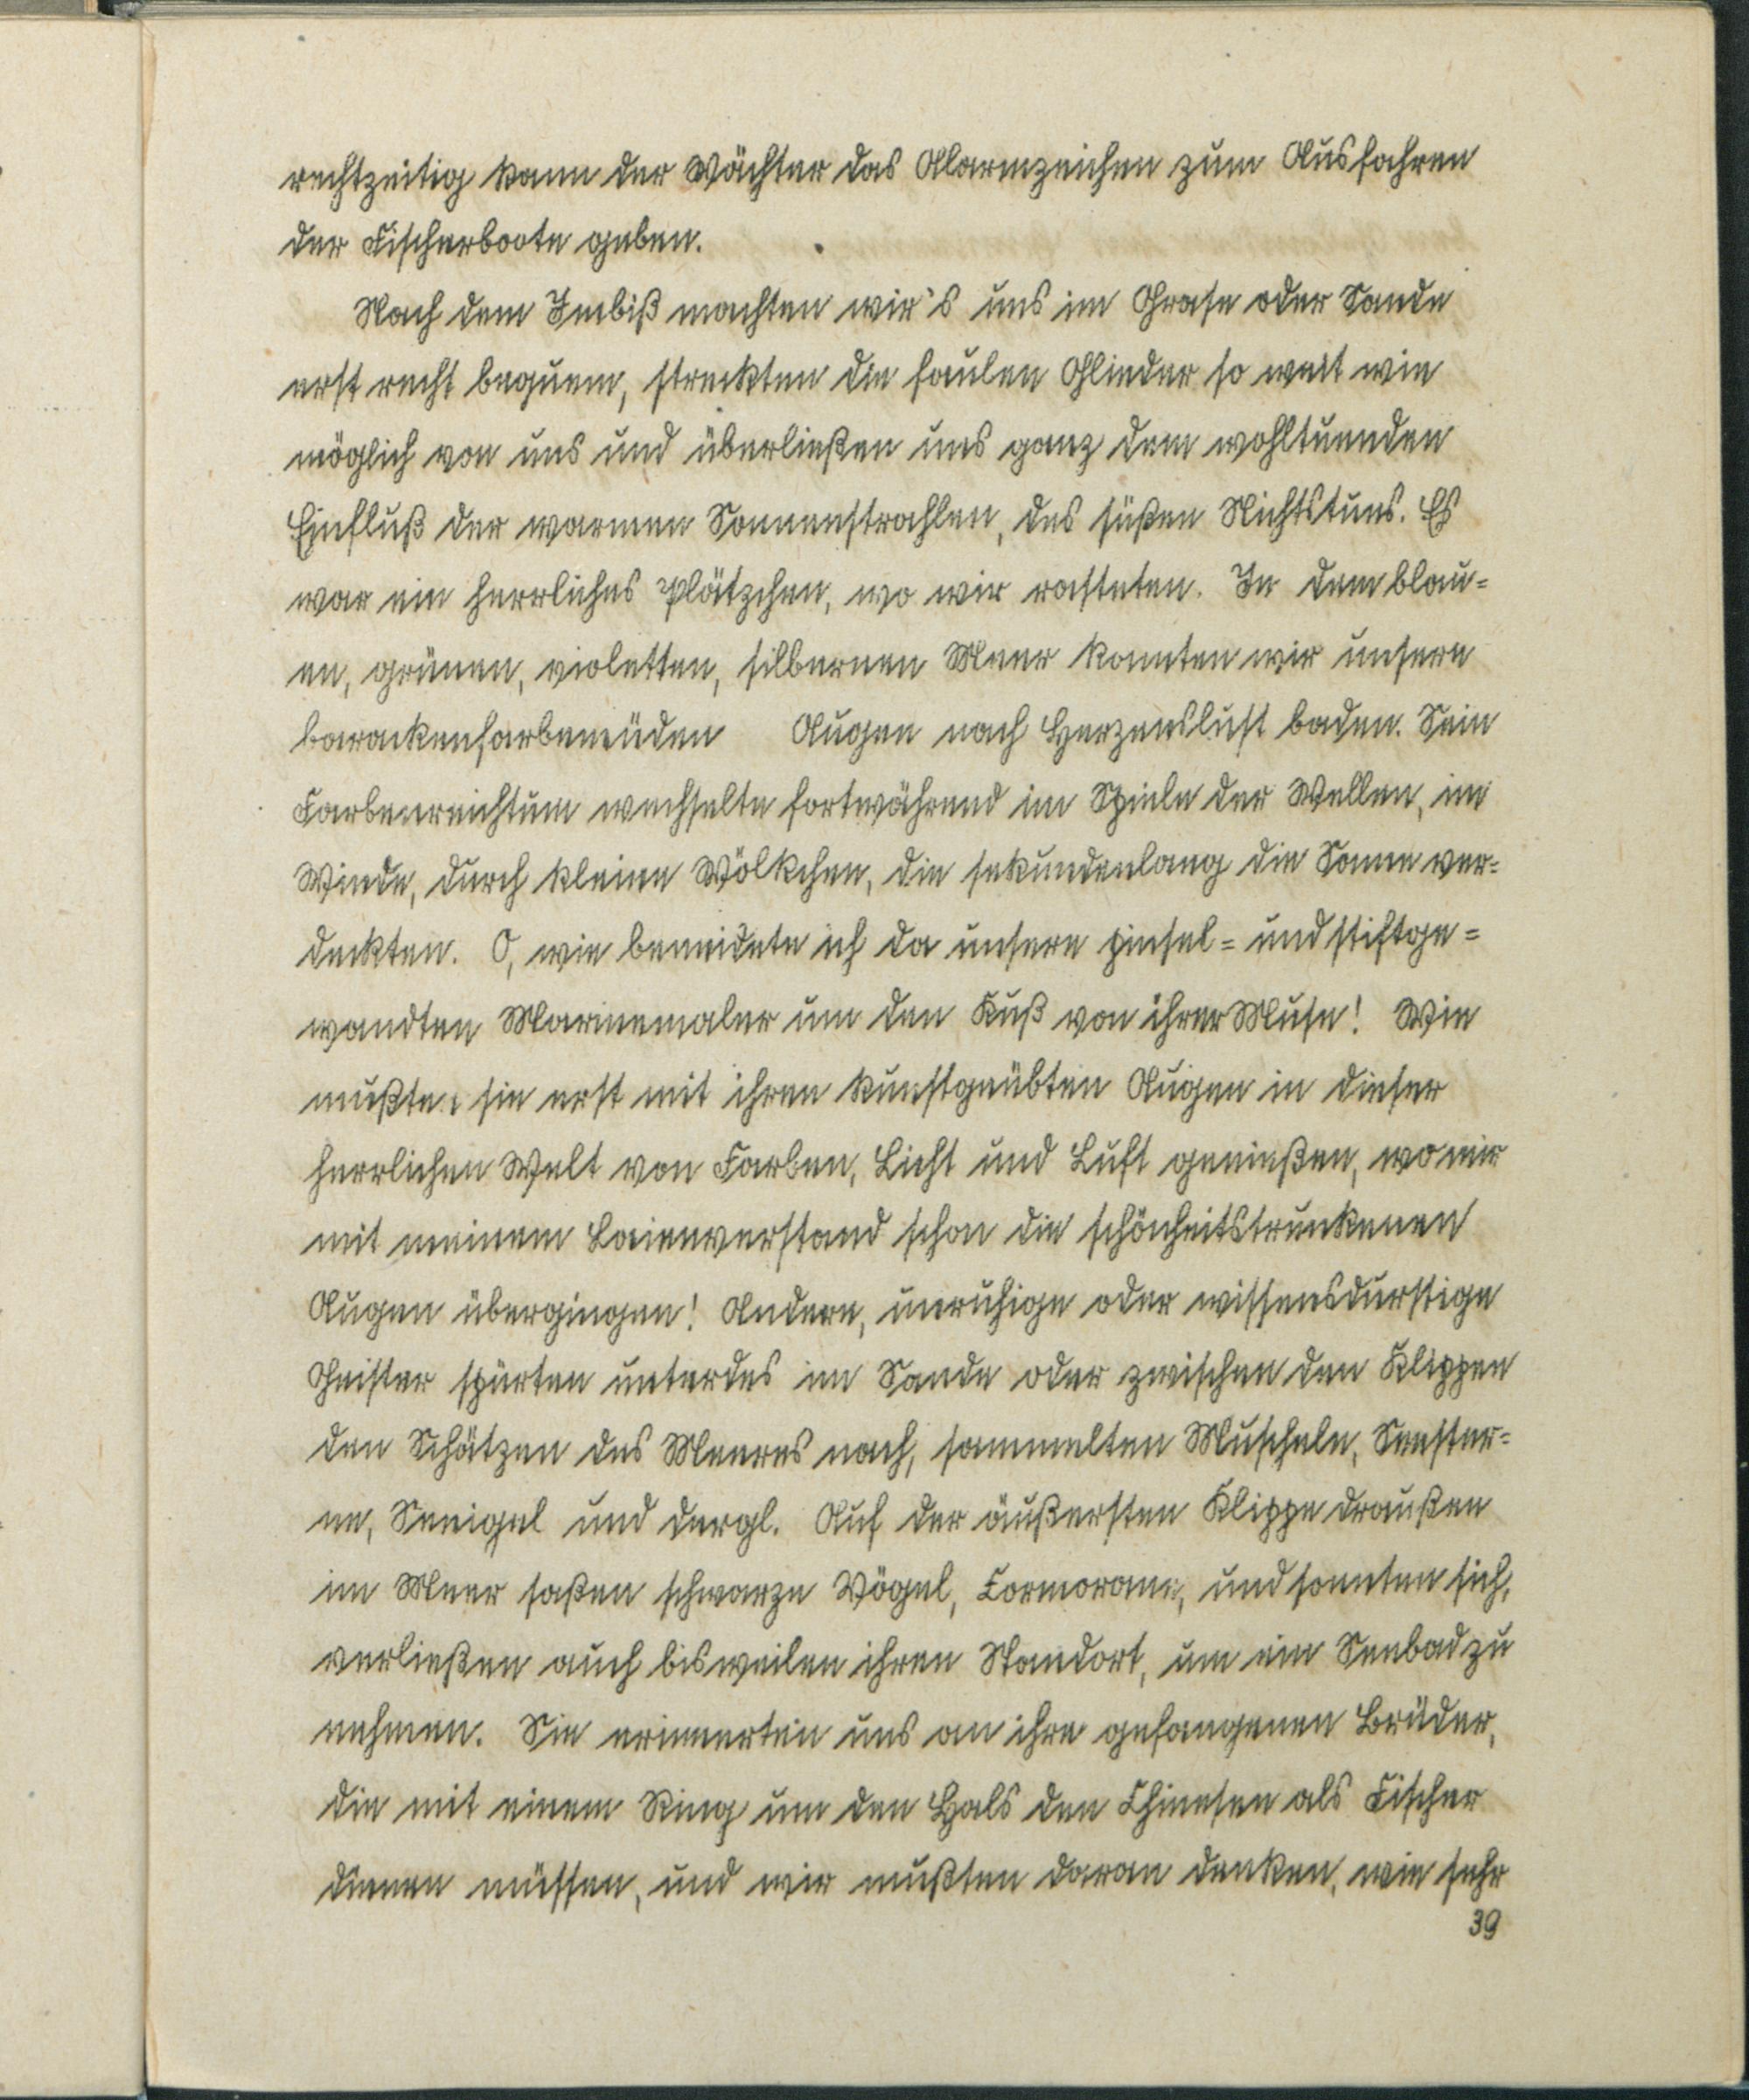 rechtzeitig kann der Wächter das Alarmzeichen zum Ausfahren
der Fischerboote geben.
Nach dem Imbiß machten wir's uns im Grase oder Sande
erst recht bequem, streckten die faulen Glieder so weit wie
möglich von uns und überließen uns ganz dem wohltuenden
Einfluß der warmen Sonnenstrahlen, des süßen Nichtstuns. Es
war ein herrliches Plätzchen, wo wir rasteten. In dem blau=
en, grünen, violetten, silbernen Meer konnten wir unsere
barackenfarbemüden Augen nach Herzenslust baden. Sein
Farbenreichtum wechselte fortwährend im Spiele der Wellen, im
Winde, durch kleine Wölkchen, die sekundenlang die Sonne ver=
deckten. O, wie beneidete ich da unsere pinsel= und stiftge=
wandten Marinemaler um den Kuß von ihrer Muse! Wie
mußten sie erst mit ihren kunstgeübten Augen in dieser
herrlichen Welt von Farben, Licht und Luft genießen, wo mir
mit meinem Laienverstand schon die schönheitstrunkenen
Augen übergingen! Andere, unruhige oder wissensdurstige
Geister spürten unterdes im Sande oder zwischen den Klippen
den Schätzen des Meeres nach, sammelten Muscheln, Seester=
ne, Seeigel und dergl. Auf der äußersten Klippe draußen
im Meer saßen schwarze Vögel, Cormorane, und sonnten sich,
verließen auch bisweilen ihren Standort, um ein Seebad zu
nehmen. Sie erinnerten uns an ihre gefangenen Brüder,
die mit einem Ring um den Hals den Chinesen als Fischer
dienen müssen, und wir mußten daran denken, wie sehr
39